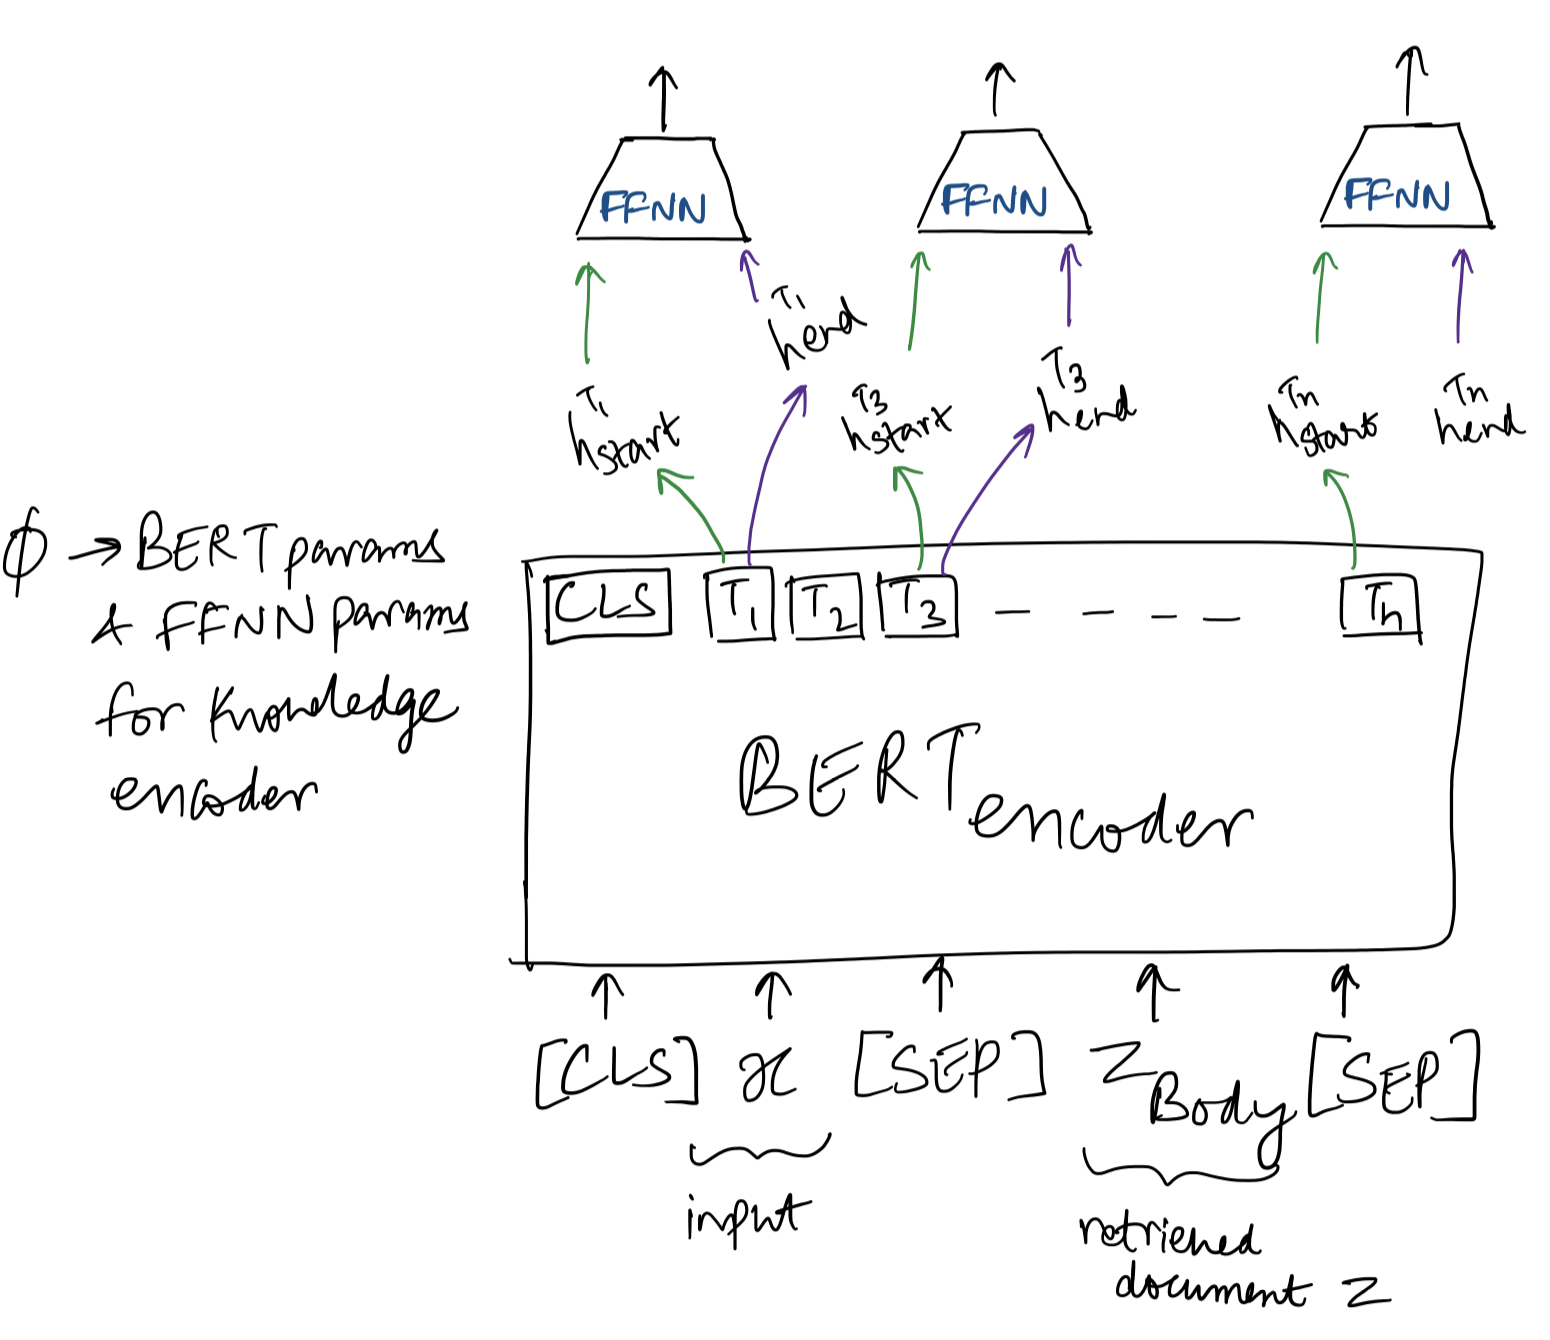 FFNN FFNN FFNN
T1 hend
T1 hstart
T3 hstart
T3 hend
Tn hstart
Tn hend
ϕ → BERT params
& FFNN params
for Knowledge
encoder
CLS T1 T2 T3 - - - - Tn
BERT encoder
[CLS] x [SEP] ZBody [SEP]
input
retrieved
document z